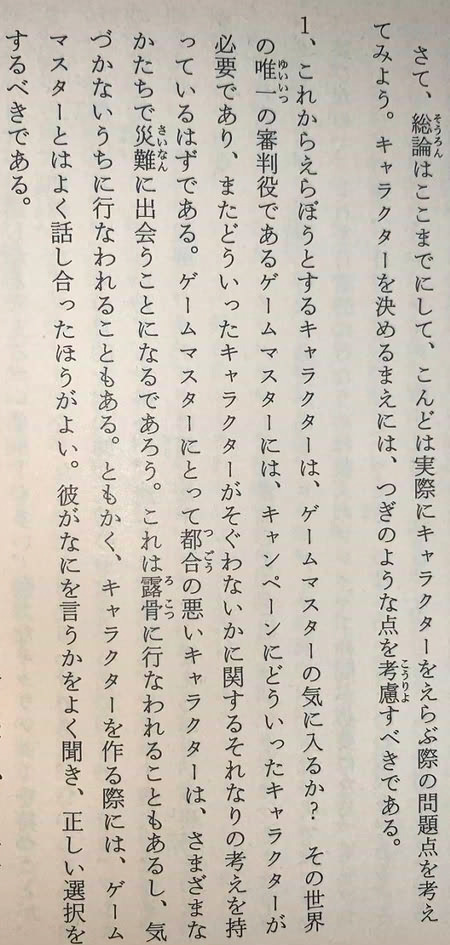 さて、総論はここまでにして、こんどは実際にキャラクターをえらぶ際の問題点を考え
てみよう。キャラクターを決めるまえには、つぎのような点を考慮すべきである。
1、これからえらぼうとするキャラクターは、ゲームマスターの気に入るか？　その世界
の唯一の審判役であるゲームマスターには、キャンペーンにどういったキャラクターが
必要であり、またどういったキャラクターがそぐわないかに関するそれなりの考えを持
っているはずである。ゲームマスターにとって都合の悪いキャラクターは、さまざまな
かたちで災難に出会うことになるであろう。これは露骨に行なわれることもあるし、気
づかないうちに行なわれることもある。ともかく、キャラクターを作る際には、ゲーム
マスターとはよく話し合ったほうがよい。彼がなにを言うかをよく聞き、正しい選択を
するべきである。